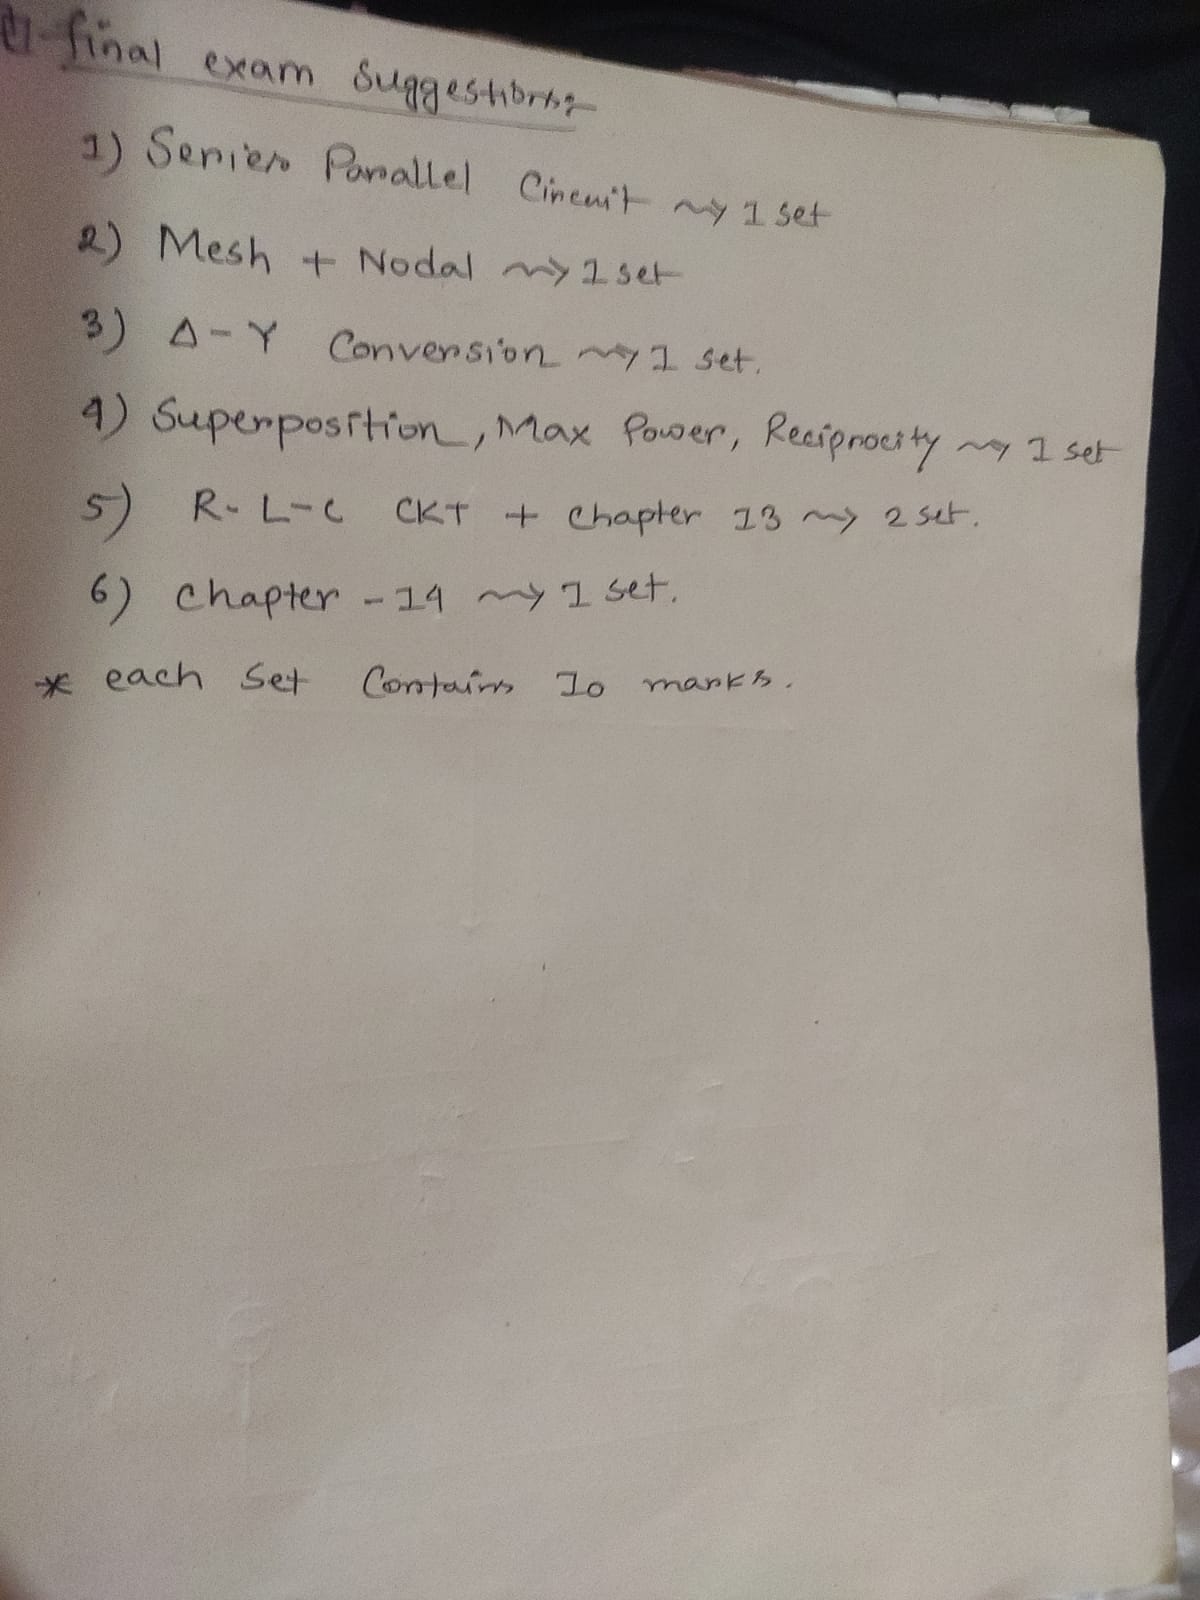 final exam suggestions
1) Series Parallel Circuit ⇝ 1 set
2) Mesh + Nodal ⇝ 1 set
3) Δ-Y Conversion ⇝ 1 set.
4) Superposition, Max Power, Reciprocity ⇝ 1 set
5) R-L-C CKT + Chapter 13 ⇝ 2 set.
6) Chapter - 14 ⇝ 1 set.
* each set Contains 10 marks.